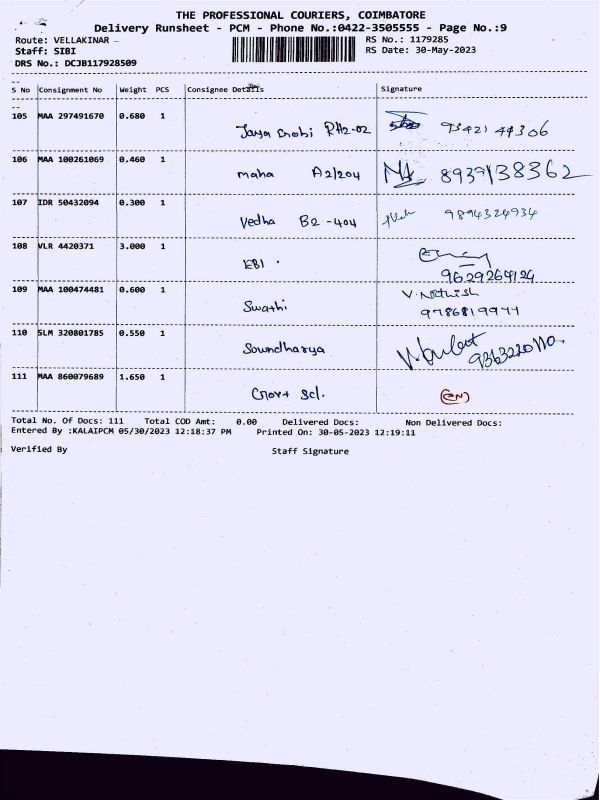 THE PROFESSIONAL COURIERS, COIMBATORE
Delivery Runsheet - PCM - Phone No.:0422-3505555 - Page No.:9
Route: VELLAKINAR RS No.: 1179285
Staff: SIBI RS Date: 30-May-2023
DRS No.: DCJB117928509
S No Consignment No Weight PCS Consignee Details Signature
105 MAA 297491670 0.680 1
106 MAA 100261069 0.460 1
maha A2/204 8939138362
107 IDR 50432094 0.300 1
Vedha B2-404 9894324934
108 VLR 4420371 3.000 1
EBI . 9629264124
109 MAA 100474481 0.600 1
Swathi
110 SLM 320801785 0.550 1
Soundharya
111 MAA 860079689 1.650 1
Govt Scl.
Total No. Of Docs: 111 Total COD Amt: 0.00 Delivered Docs: Non Delivered Docs:
Entered By :KALAIPCM 05/30/2023 12:18:37 PM Printed On: 30-05-2023 12:19:11
Verified By Staff Signature